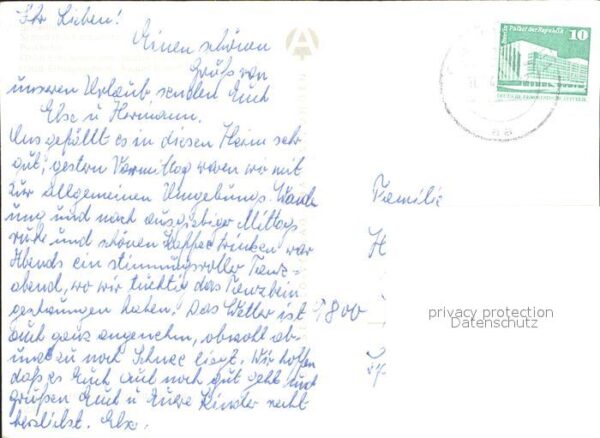 Ihr Lieben!
Einen schönen
Gruß von
unseren Urlaub, senden Euch
Else u Hermann.
Uns gefällt es in diesen Heim sehr
gut, gestern Vormittag waren wo mit
zur allgemeinen Umgebungs-Wande
ung und nach ausgiebiger Mittags
ruhe und schönen Kaffee trinken war
Abends ein stimmungsvoller Tanz-
abend, wo wir tüchtig das Tanzbein
geschwungen haben. Das Wetter ist
auch ganz angenehm, obwohl ab-
und zu noch Schnee liegt. Wir hoffen
daß es Euch auch noch gut geht und
grüßen Euch u Eure Kinder recht
herzlichst. Else.
10
Palast der Republik
DEUTSCHE DEMOKRATISCHE REPUBLIK
Familie
H
9800
privacy protection
Datenschutz